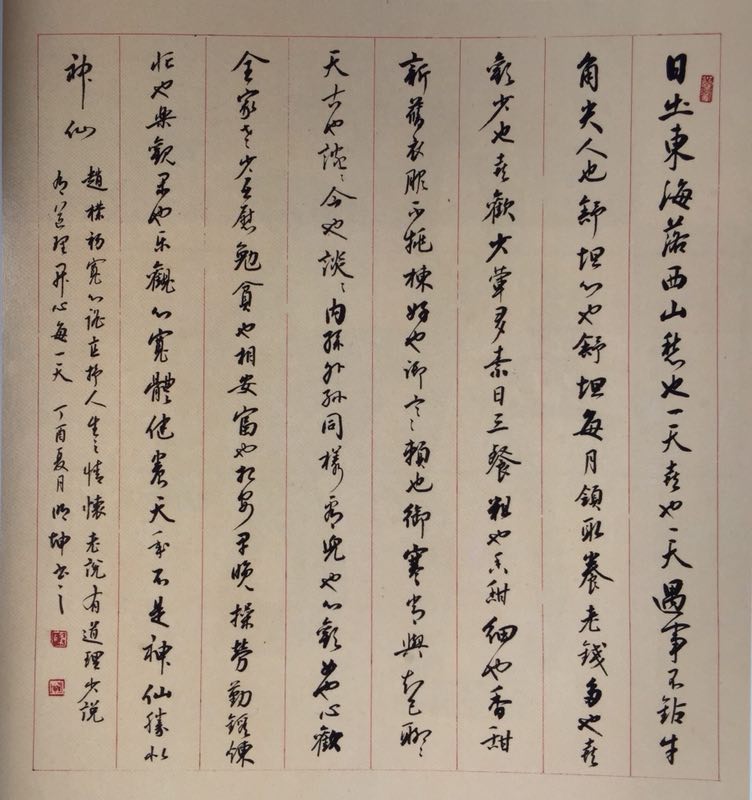 日出東海落西山愁也一天喜也一天遇事不鉆牛
角尖人也舒坦心也舒坦每月領取養老錢多也喜
歡少也喜歡少葷多素日三餐粗也香甜細也香甜
新舊衣服不挑揀好也御寒賴也御寒常與知己聊聊
天古也談談今也談談内孫外孫同樣看兒也心歡女也心歡
全家老少互慰勉貧也相安富也相安早晚操勞勤鍛鍊
忙也樂觀閑也樂觀心寬體健養天年不是神仙勝似
神仙
趙樸初寬心謠直抒人生之情懷老說有道理少說
有道理開心每一天 丁酉夏月 明坤書之